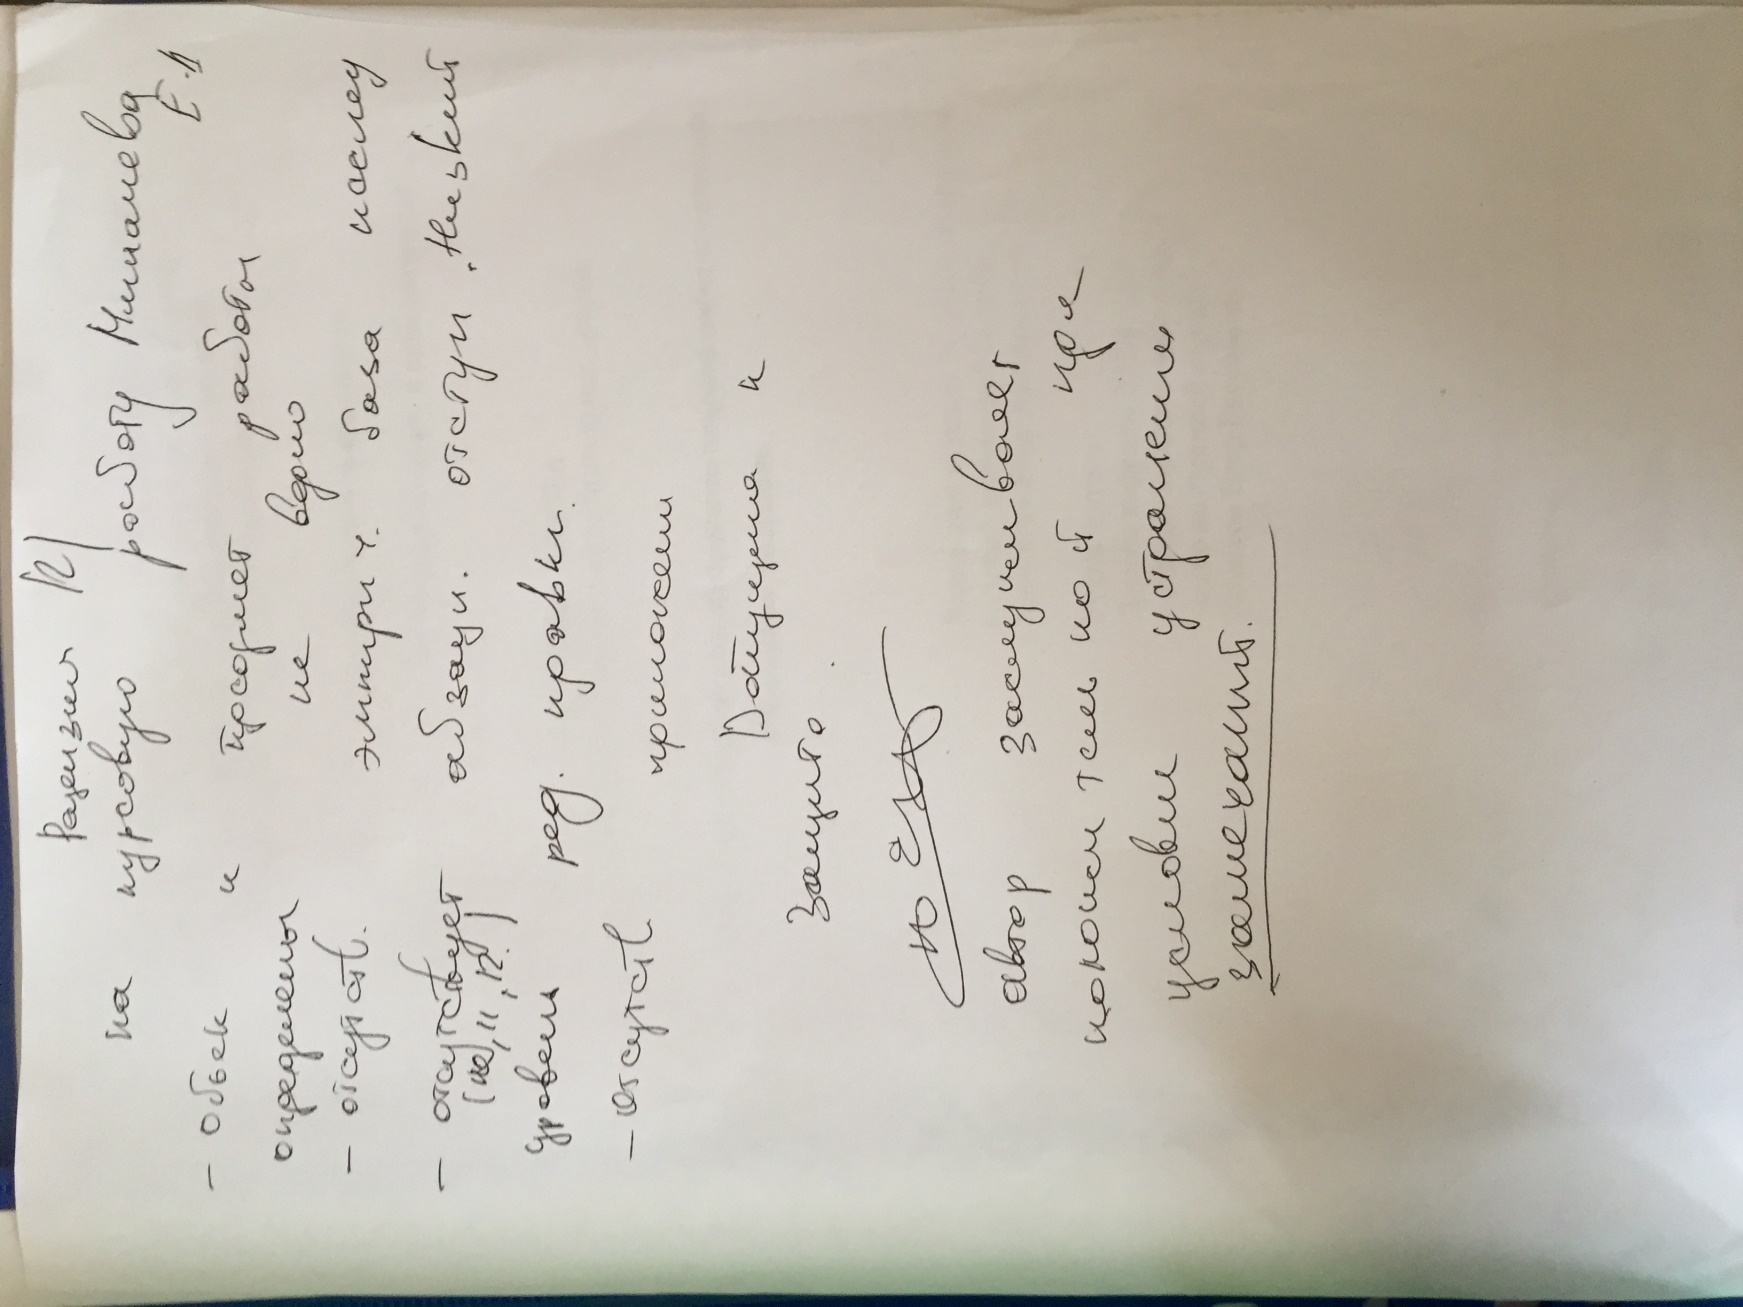 Рецензия R/
на курсовую работу Миналиева
Е.А
– объек и предмет работы
определены не верно
– отсутств. эмпирич. база исслед
– отсутствует абзацн. отступ. Низкий
(на, 11, 12.)
уровень ред. правки.
– отсутств приложени
Допущена к
защите
автор заслуживает
положительной при
условии устранения
замечаний.